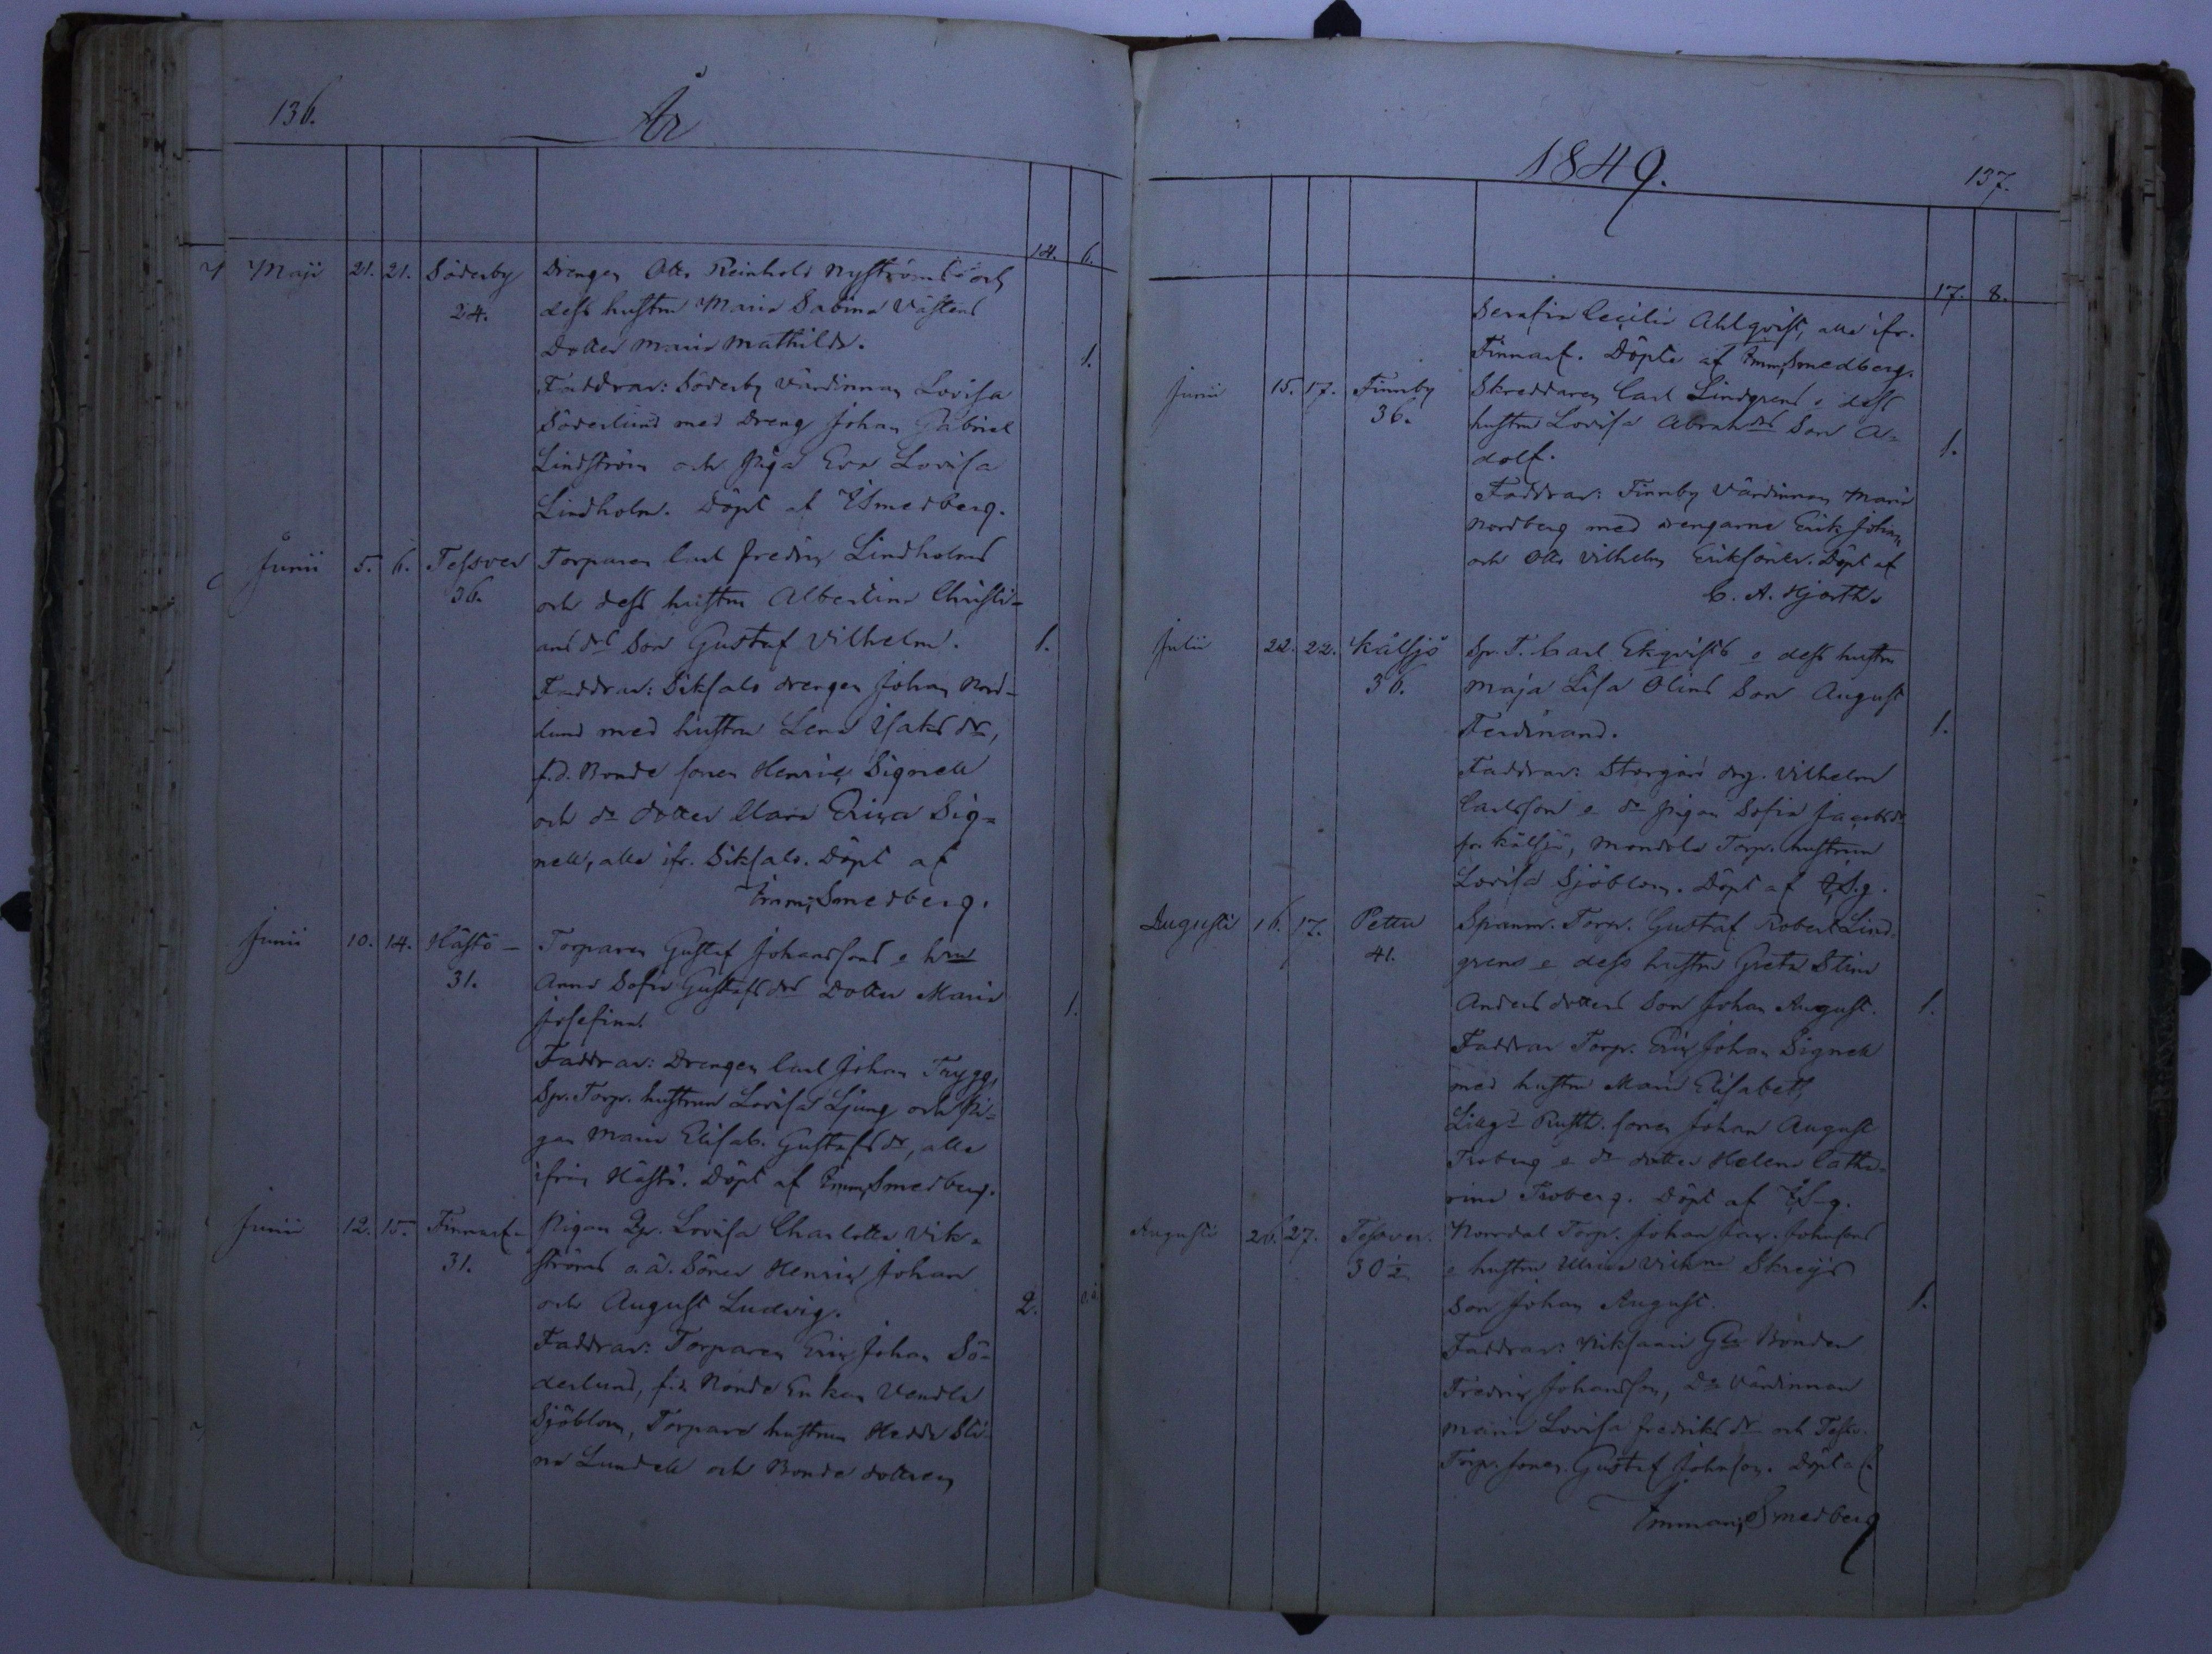 136.
År
14. 6.
Maji 21. 21. Söderby Drengen Otto Reinhold Nyströms och
24. dess hustru Maria Sabina Västens
Dotter Maria Mathilda. 1.
Faddrar: Söderby Värdinnan Lovisa
Söderlund med Dreng Johan Gabriel
Lindström och Piga Eva Lovisa
Lindholm. Döpt af ESmedberg.
Junii 5. 6. Tessver Torparen Carl Fredric Lindholms
36. och dess hustru Albertina Christi-
ans dr Son Gustaf Vilhelm. 1.
Faddrar: Siksalo drengen Johan Nord-
lund med hustru Lena Isaks dr,
f.d. Bonde sonen Henric Signell
och do dotter Clara Erica Sig-
nell, alla ifr. Siksalo. Döpt af
Emm. Smedberg.
Junii 10. 14. Hästö- Torparen Gustaf Johanssons e hru
31. Anna Sofia Gustafsdrs Dotter Maria
Josefina. 1.
Faddrar: Drengen Carl Johan Trygg,
Spr. Torpr. hustrun Lovisa Ljung och Pi-
gan Maria Elisab. Gustafs dr, alla
ifrån Hästö. Döpt af Emm. Smedberg.
Junii 12. 15. Finnarf- Pigan Qp. Lovisa Charlotta Vik-
31. ströms o.ä. Söner Henric Johan
och August Ludvig. 2. o.ä.
Faddrar: Torparen Eric Johan Sö-
derlund, f.d. Bonde Enkan Vendla
Sjöblom, Torpare hustrun Hedda Sti-
na Lundell och Bonde dottren
1849.
137.
17. 8.
Serafia Cecilia Ahlqvist, alla ifr.
Finnarf. Döpte af Emm. Smedberg.
Junii 15. 17. Finnby Skreddaren Carl Lindgrens e dess
36. hustru Lovisa Abrah drs Son A-
dolf. 1.
Faddrar: Finnby Värdinnan Maria
Nordberg med drengarne Erik Johan
och Otto Vilhelm Eriksöner. Döpt af
C. A. Hjorth.
Julii 22. 22. Källsjö Spr. T. Carl Ekqvists e dess hustru
36. Maja Lisa Olins Son August
Ferdinand. 1.
Faddrar: Storgård drg. Vilhelm
Carlsson e do pigan Sofia Jacobsdr
fr. Källsjö, Mondola Torp. hustrun
Lovisa Sjöblom. Döpt af E.S.g.
Augusti 16. 17. Pettu Spanm. Torpr. Gustaf Robert Lind-
41. grens e dess hustru Greta Stina
Anders dotters Son Johan August. 1.
Faddrar Torpr. Eric Johan Signell
med hustru Maria Elisabet,
Lillgd Rusth. sonen Johan August
Troberg e do dotter Helena Catha-
rina Troberg. Döpt af E.S-g.
Augusti 26. 27. Tessver. Norrdal Torpr. Johan Jac. Johnsons
30 ½. e hustru Ulrica Vilhna Skreijs
Son Johan August. 1.
Faddrar: Bonden
Fredric Johansson, Do Värdinnan
Maria Lovisa Fredriks dr och Tessv.
Torpr. sonen Gustaf Johnson. Döpt af
Emman. Smedberg